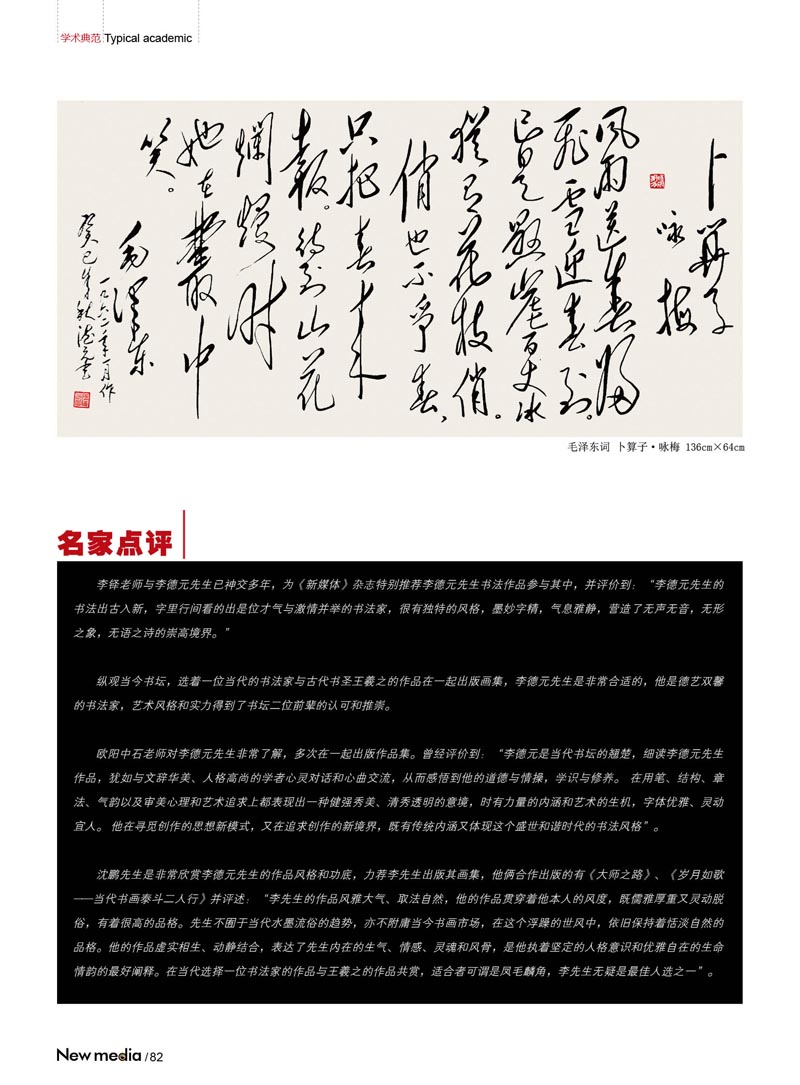 学术典范 Typical academic
卜算子
咏梅
风雨送春归
飞雪迎春到。
已是悬崖百丈冰
犹有花枝俏。
俏也不争春，
只把春来
报。待到山花
烂熳时
她在丛中
笑。
毛泽东
一九六一年十二月作
癸巳年秋德元书
毛泽东词 卜算子·咏梅 136cm×64cm
名家点评
李铎老师与李德元先生已神交多年，为《新媒体》杂志特别推荐李德元先生书法作品参与其中，并评价到：“李德元先生的
书法出古入新，字里行间看的出是位才气与激情并举的书法家，很有独特的风格，墨妙字精，气息雅静，营造了无声无音，无形
之象，无语之诗的崇高境界。”
纵观当今书坛，选着一位当代的书法家与古代书圣王羲之的作品在一起出版画集，李德元先生是非常合适的，他是德艺双馨
的书法家，艺术风格和实力得到了书坛二位前辈的认可和推崇。
欧阳中石老师对李德元先生非常了解，多次在一起出版作品集。曾经评价到：“李德元是当代书坛的翘楚，细读李德元先生
作品，犹如与文辞华美、人格高尚的学者心灵对话和心曲交流，从而感悟到他的道德与情操，学识与修养。 在用笔、结构、章
法、气韵以及审美心理和艺术追求上都表现出一种健强秀美、清秀透明的意境，时有力量的内涵和艺术的生机，字体优雅、灵动
宜人。 他在寻觅创作的思想新模式，又在追求创作的新境界，既有传统内涵又体现这个盛世和谐时代的书法风格”。
沈鹏先生是非常欣赏李德元先生的作品风格和功底，力荐李先生出版其画集，他俩合作出版的有《大师之路》、《岁月如歌
——当代书画泰斗二人行》并评述：“李先生的作品风雅大气、取法自然，他的作品贯穿着他本人的风度，既儒雅厚重又灵动脱
俗，有着很高的品格。先生不囿于当代水墨流俗的趋势，亦不附庸当今书画市场，在这个浮躁的世风中，依旧保持着恬淡自然的
品格。他的作品虚实相生、动静结合，表达了先生内在的生气、情感、灵魂和风骨，是他执着坚定的人格意识和优雅自在的生命
情韵的最好阐释。在当代选择一位书法家的作品与王羲之的作品共赏，适合者可谓是凤毛麟角，李先生无疑是最佳人选之一”。
New media /82